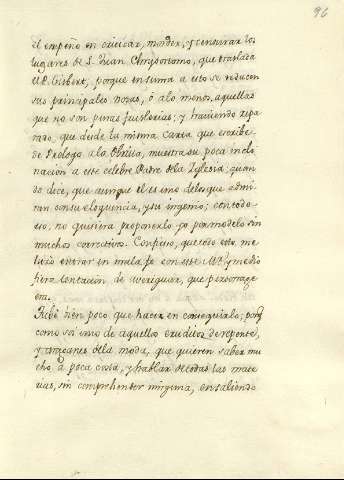 96
el empeño en criticar, morder, y censurar los
lugares de S. Juan Chrysostomo, que traslada
el P. Gisbert, porque en suma a esto se reducen
sus principales notas, ó alo menos, aquellas
que no son puras fruslerias; y haviendo repa
rado, que desde la misma carta que escribe
de Prologo ala Obrilla, muestra su poca incli
nacion a este celebre Padre dela Iglesia; quan
do dice, que aunque el es uno delos que admi
ran su eloquencia, y su ingenio; con todo
eso, no quisiera proponerlo yo por modelo sin
muchos correctivos. Confieso, que todo esto, me
hizo entrar en mala fe con este M. P. y me dio
fuerte tentacion, de averiguar, que personage
era.
Tube bien poco que hacer en conseguirlo; porq
como soi uno de aquellos eruditos de repente,
y dela moda, que quieren saber mu
cho a poca costa, y hablar de todas las mate
rias, sin comprehender ninguna, en saliendo